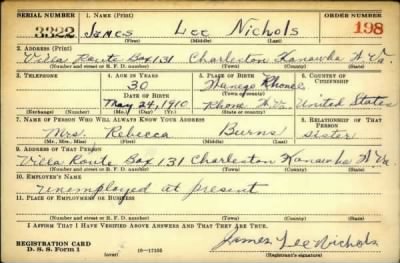 SERIAL NUMBER 1. NAME (Print) ORDER NUMBER
3322 James Lee Nichols 198
(First) (Middle) (Last)
2. ADDRESS (Print)
Villa Route Box 131 Charleston Kanawha W. Va.
(Number and street or R. F. D. number) (Town) (County) (State)
3. TELEPHONE 4. AGE IN YEARS 5. PLACE OF BIRTH 6. COUNTRY OF CITIZENSHIP
30
DATE OF BIRTH (Town or county)
May 24, 1910 W. Va. United States
(Exchange) (Number) (Mo.) (Day) (Yr.) (State or country)
7. NAME OF PERSON WHO WILL ALWAYS KNOW YOUR ADDRESS 8. RELATIONSHIP OF THAT PERSON
Mrs. Rebecca Burns sister
(Mr., Mrs., Miss) (First) (Middle) (Last)
9. ADDRESS OF THAT PERSON
Villa Route Box 131 Charleston Kanawha W. Va.
(Number and street or R. F. D. number) (Town) (County) (State)
10. EMPLOYER'S NAME
unemployed at present
11. PLACE OF EMPLOYMENT OR BUSINESS
(Number and street or R. F. D. number) (Town) (County) (State)
I AFFIRM THAT I HAVE VERIFIED ABOVE ANSWERS AND THAT THEY ARE TRUE.
James Lee Nichols
REGISTRATION CARD
D. S. S. Form 1 (over) (Registrant's signature)